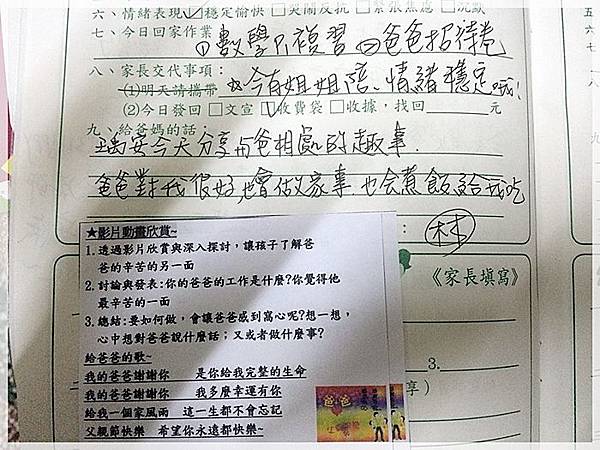 六、情緒表現 ☑穩定愉快 □哭鬧反抗 □緊張焦慮 □沉默
七、今日回家作業
①數學P.複習 ②爸爸招待卷
八、家長交代事項： 今有姐姐陪、情緒穩定哦！
(1)明天請攜帶
(2)今日發回 □文宣 ☑收費袋 □收據，找回 元
九、給爸媽的話
安今天分享与爸相處的趣事.
爸爸對我很好也會做家事 也会煮飯給我吃
林
《家長填寫》
3.
享）
★影片動畫欣賞~
1.透過影片欣賞與深入探討，讓孩子了解爸
爸的辛苦的另一面
2.討論與發表:你的爸爸的工作是什麼?你覺得他
最辛苦的一面
3.總結:要如何做，會讓爸爸感到窩心呢?想一想，
心中想對爸爸說什麼話；又或者做什麼事?
給爸爸的歌~
我的爸爸謝謝你 是你給我完整的生命
我的爸爸謝謝你 我多麼幸運有你
給我一個家風雨 這一生都不會忘記
父親節快樂 希望你永遠都快樂~
爸爸